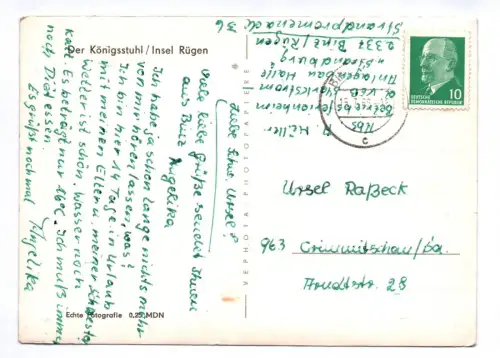 Der Königsstuhl / Insel Rügen
Liebe Ursel!
viele liebe Grüße sendet Ihnen
aus Binz Angelika
Ich habe ja schon lange nichts mehr
von mir hören lassen, was?
Ich bin hier 14 Tage in Urlaub
mit meinen Eltern u. meiner Schwester
Wetter ist schön. Wasser noch
kalt. Es beträgt nur 16°C. Ich muß immer
noch Diät essen.
Es grüßt nochmal Angelika
Echte Fotografie 0,25 MDN
VEPHOTA PHOTOPAPIER
A. Müller
Betriebsferienheim
d. VEB Starkstrom
Anlagenbau Halle
"Strandburg"
2337 Binz/Rügen
Strandpromenade 36
10
DEUTSCHE
DEMOKRATISCHE REPUBLIK
c
Ursel Raßeck
963 Crimmitschau/Sa.
Arndtstr. 28